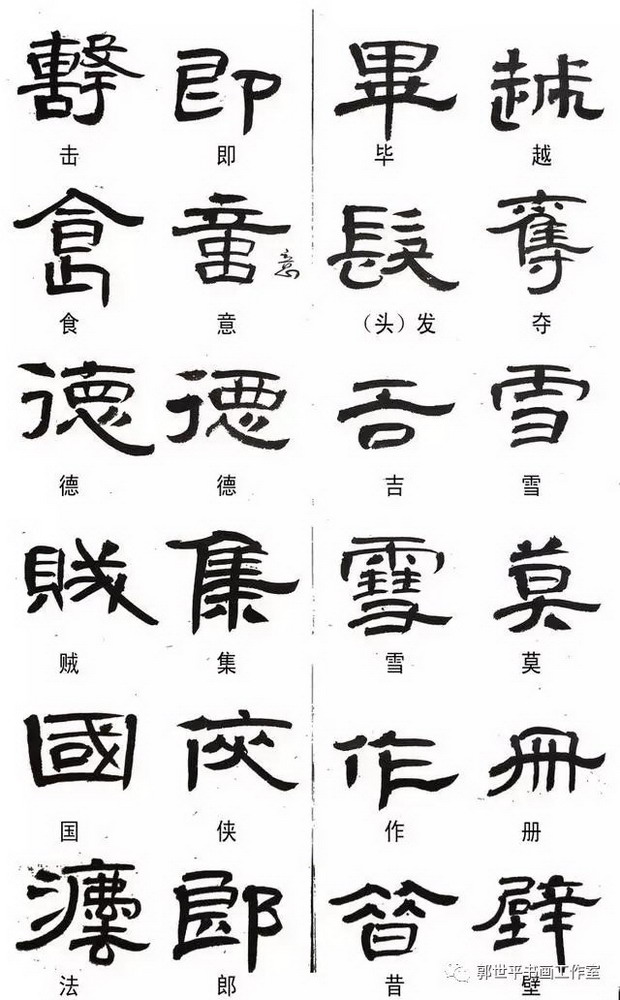 擊 即 畢 越
击 即 毕 越
食 意 髮 奪
食 意 （头）发 夺
德 德 吉 雪
德 德 吉 雪
賊 集 雪 莫
贼 集 雪 莫
國 俠 作 冊
国 侠 作 册
灋 郎 昔 壁
法 郎 昔 壁
郭世平书画工作室